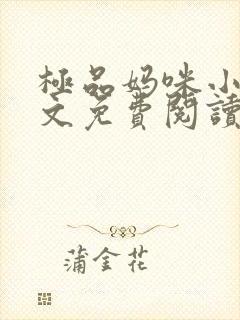 極品妈咪小
文免費閱讀
蒲金花